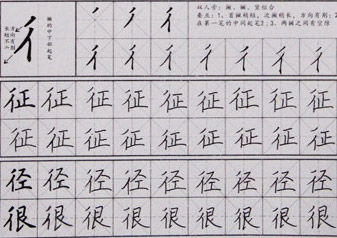 双人旁：撇、撇、竖结合
要点：1、首撇稍短，次撇稍长，方向有别；2、
在第一笔的中间起笔；3、两撇之间有空隙
撇的中下部起笔
方向有别
长短不一
彳
彳 彳 彳 彳 彳 彳 彳 彳
征 征 征 征 征 征 征 征 征
征 征 征 征 征 征 征 征 征
径 径 径 径 径 径 径 径 径
很 很 很 很 很 很 很 很 很